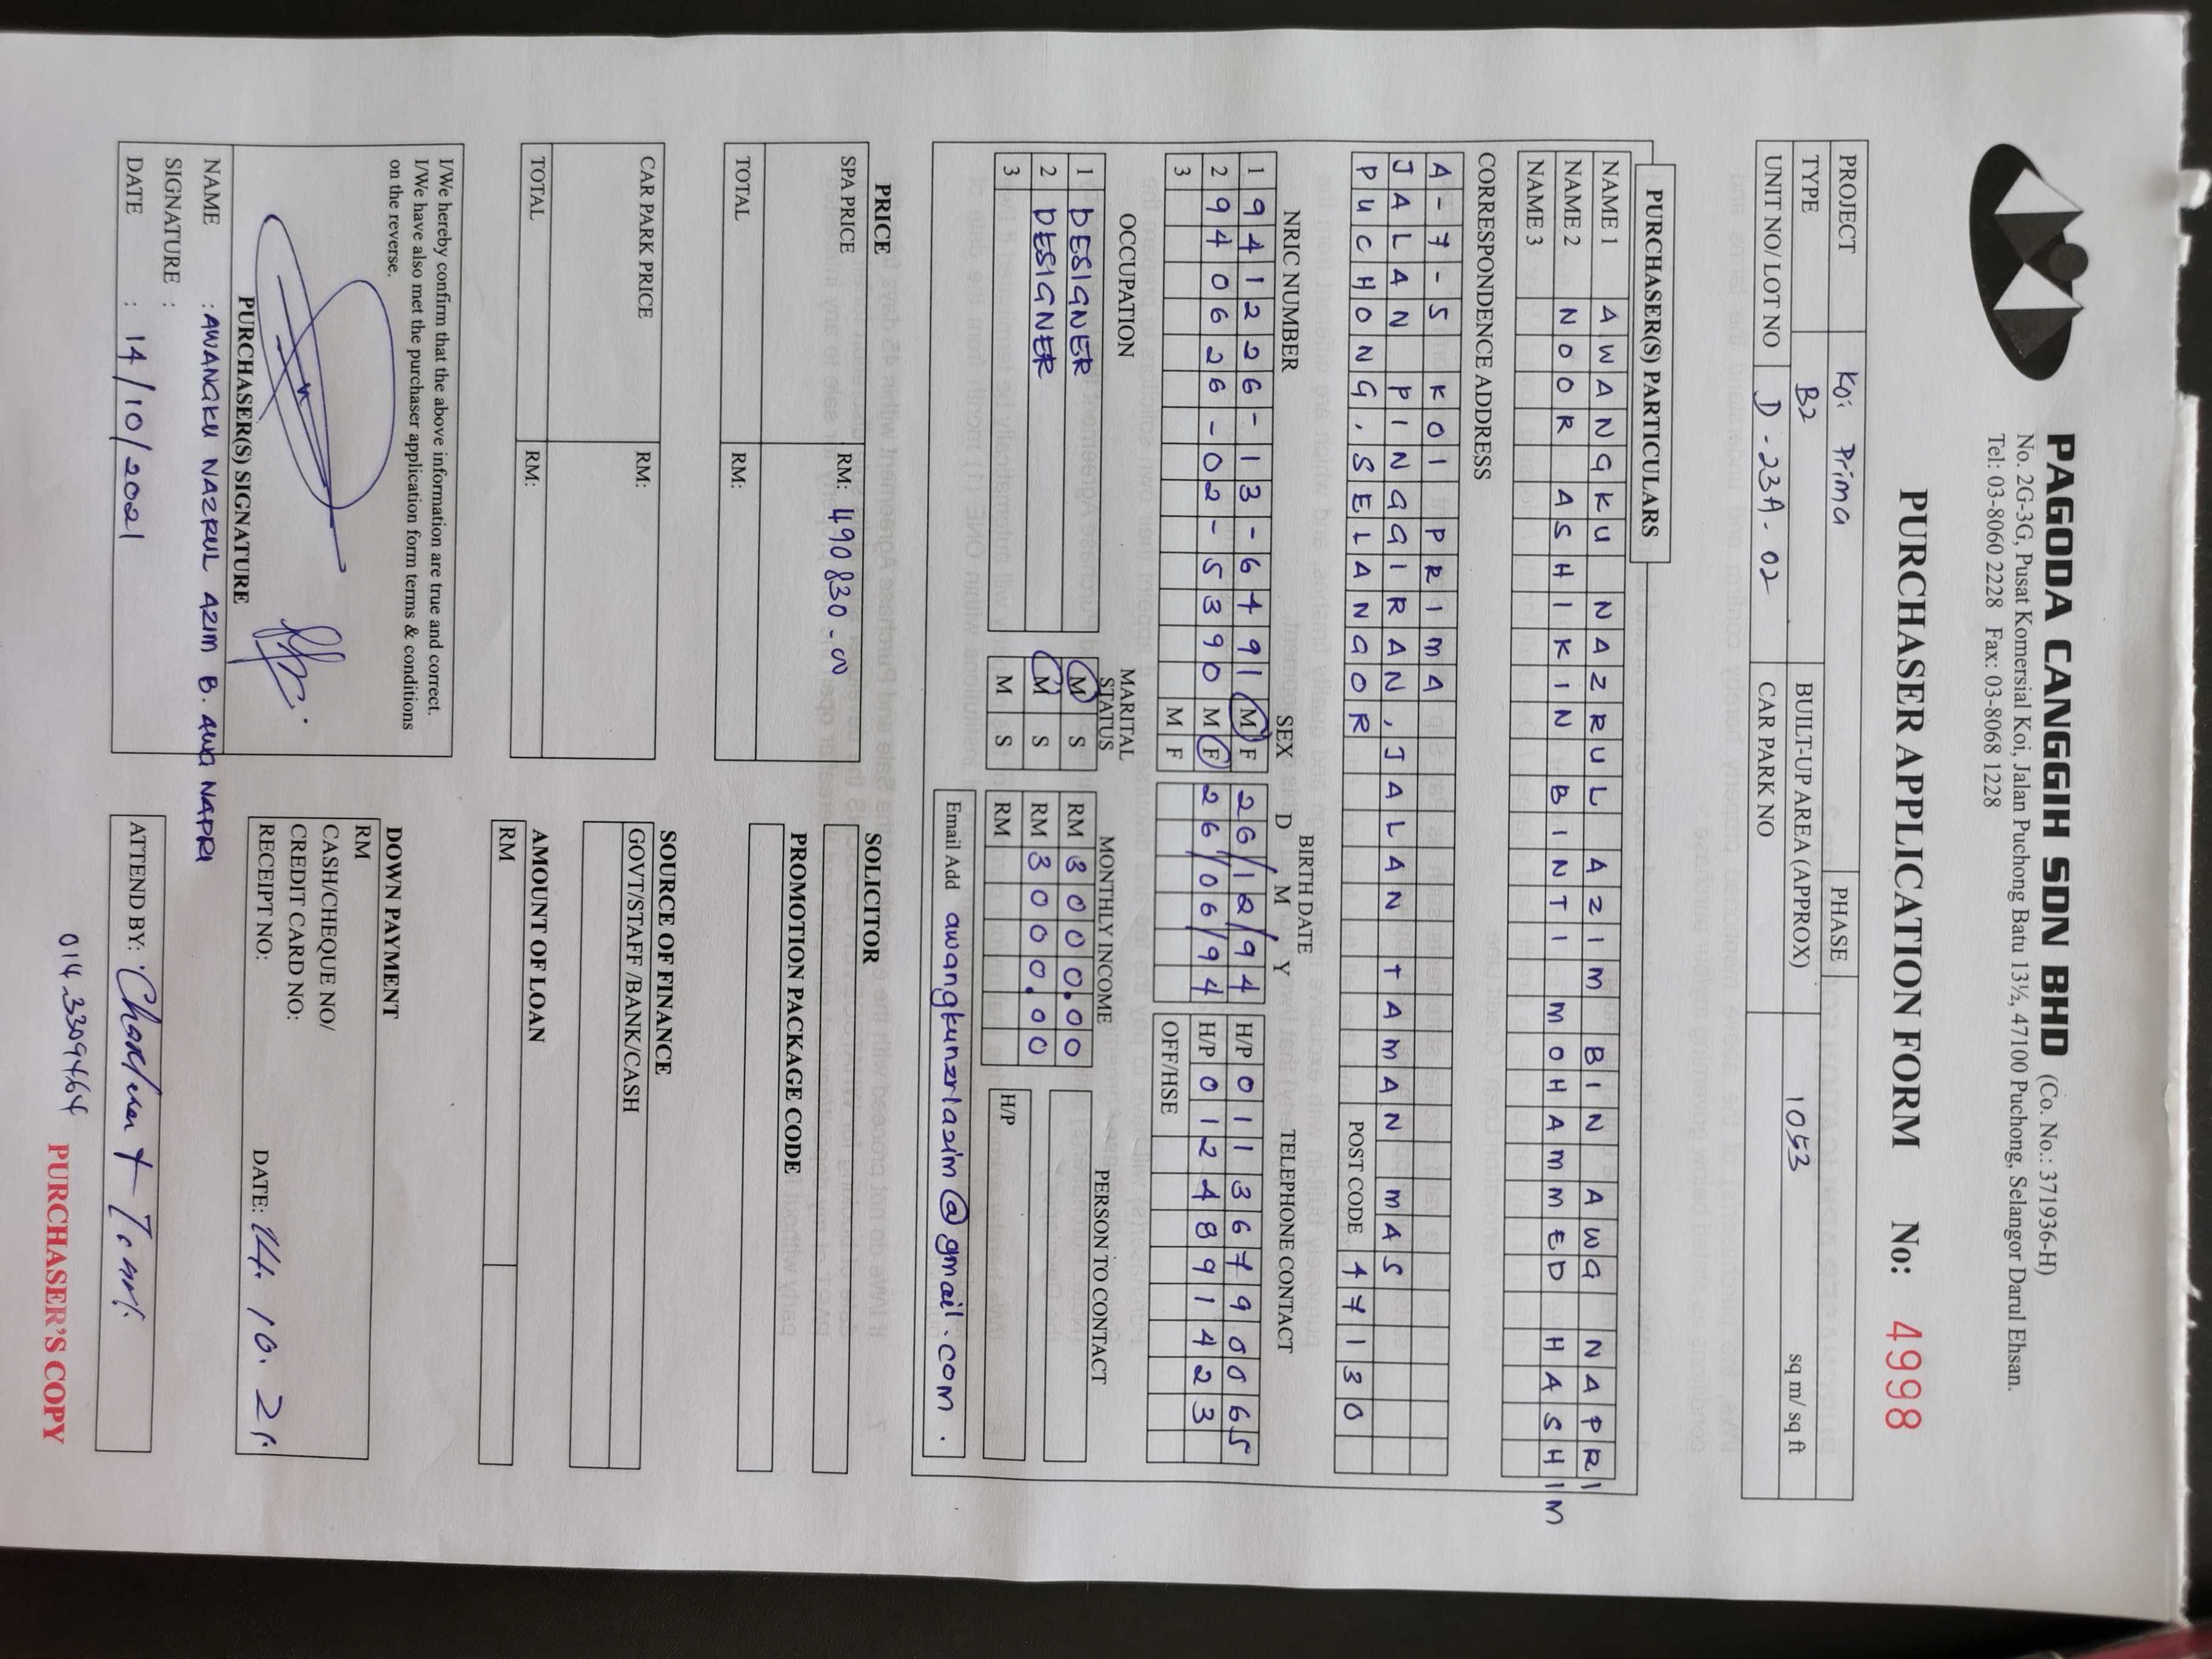 PAGODA CANGGIH SDN BHD (Co. No.: 371936-H)
No. 2G-3G, Pusat Komersial Koi, Jalan Puchong Batu 13½, 47100 Puchong, Selangor Darul Ehsan.
Tel: 03-8060 2228 Fax: 03-8068 1228
PURCHASER APPLICATION FORM No: 4998
PROJECT Koi Prima PHASE
TYPE B2 BUILT-UP AREA (APPROX) 1053 sq m/ sq ft
UNIT NO/ LOT NO D - 23A - 02 CAR PARK NO
PURCHASER(S) PARTICULARS
NAME 1 AWANGKU NAZRUL AZIM BIN AWG NAPRI
NAME 2 NOOR ASHIKIN BINTI MOHAMMED HASHIM
NAME 3
CORRESPONDENCE ADDRESS
A-7-5 KOI PRIMA
JALAN PINGGIRAN, JALAN TAMAN MAS
PUCHONG, SELANGOR POST CODE 47130
NRIC NUMBER SEX BIRTH DATE TELEPHONE CONTACT
D M Y
1 941226-13-6491 M F 26/12/94 H/P 01136790065
2 940626-02-5390 M F 26/06/94 H/P 0124891423
3 M F OFF/HSE
OCCUPATION MARITAL STATUS MONTHLY INCOME PERSON TO CONTACT
1 DESIGNER M S RM 3000.00
2 DESIGNER M S RM 3000.00
3 M S RM H/P
Email Add awangkunzrlasim@gmail.com.
PRICE SOLICITOR
SPA PRICE RM: 490 830 - 00
PROMOTION PACKAGE CODE
TOTAL RM:
SOURCE OF FINANCE
CAR PARK PRICE RM: GOVT/STAFF /BANK/CASH
TOTAL RM: AMOUNT OF LOAN
RM
I/We hereby confirm that the above information are true and correct.
I/We have also met the purchaser application form terms & conditions
on the reverse.
DOWN PAYMENT
RM
CASH/CHEQUE NO/
CREDIT CARD NO: DATE: 14. 10. 21.
RECEIPT NO:
PURCHASER(S) SIGNATURE
NAME : AWANGKU NAZRUL AZIM B. AWG NAPRI
SIGNATURE :
DATE : 14/10/2021
ATTEND BY:
014-3309464
PURCHASER'S COPY